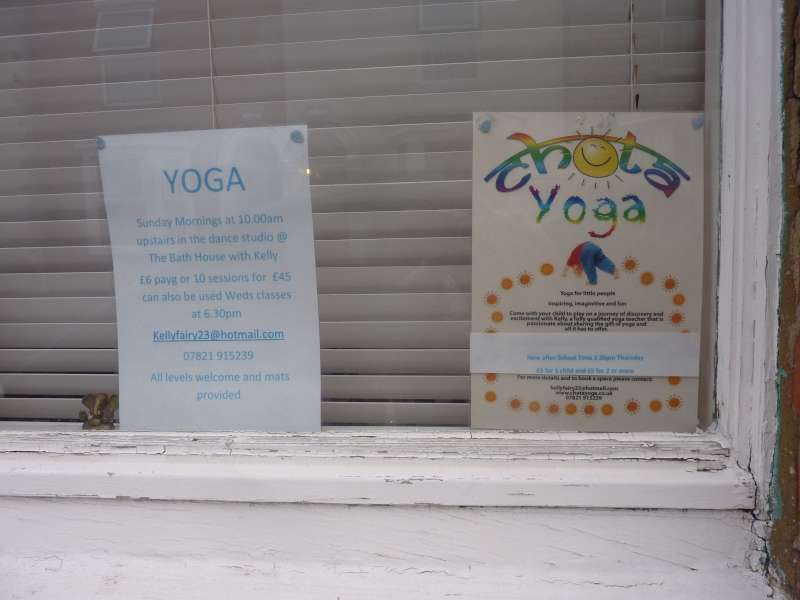 YOGA
Sunday Mornings at 10.00am
upstairs in the dance studio @
The Bath House with Kelly
£6 payg or 10 sessions for £45
can also be used Weds classes
at 6.30pm
Kellyfairy23@hotmail.com
07821 915239
All levels welcome and mats
provided
chota
yoga
Yoga for little people
Inspiring, imaginitive and fun
Come with your child to play on a journey of discovery and
excitement with Kelly, a fully qualified yoga teacher that is
passionate about sharing the gift of yoga and
all it has to offer.
Now after School Time 3.30pm Thursday
£3 for 1 child and £5 for 2 or more
For more details and to book a space please contact:
kellyfairy23@hotmail.com
www.chotayoga.co.uk
07821 915239